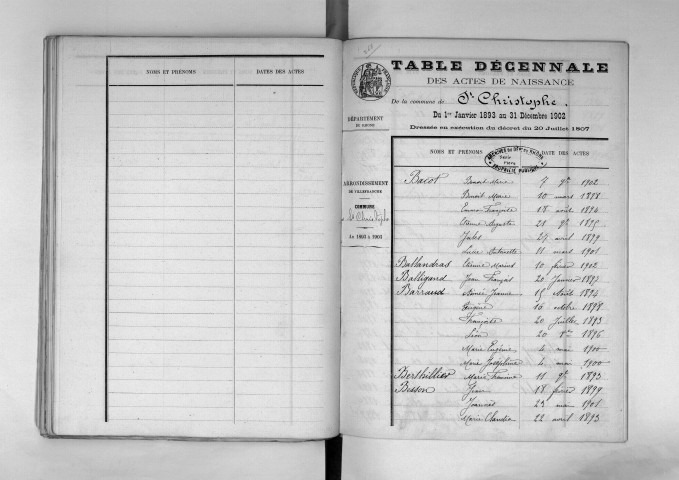 NOMS ET PRÉNOMS DATES DES ACTES
TABLE DÉCENNALE
DES ACTES DE NAISSANCE
De la commune de St Christophe.
Du 1er Janvier 1893 au 31 Décembre 1902
Dressée en exécution du décret du 20 Juillet 1807
DÉPARTEMENT
DU RHONE
ARRONDISSEMENT
DE VILLEFRANCHE
COMMUNE
St Christophe
de 1893 à 1903
NOMS ET PRÉNOMS DATE DES ACTES
Bacot Benoit Marie 7 9bre 1902
Benoit Marie 10 mars 1898
Emma Françoise 18 août 1894
Etienne Auguste 21 9bre 1895
Jules 27 avril 1899
Lucie Antoinette 11 mars 1901
Ballandras Etienne Marius 10 février 1902
Balligand Jean François 20 Janvier 1897
Barraud Aimée Jeanne 15 Août 1894
Eugène 16 octobre 1898
Françoise 20 Juillet 1893
Léon 20 1896
Marie Eugène 4 mai 1900
Marie Joséphine 4 mai 1900
Berthillier Marie 11 9bre 1893
Besson Jean 18 février 1899
Joannès 23 mai 1901
Marie Claudia 22 avril 1893